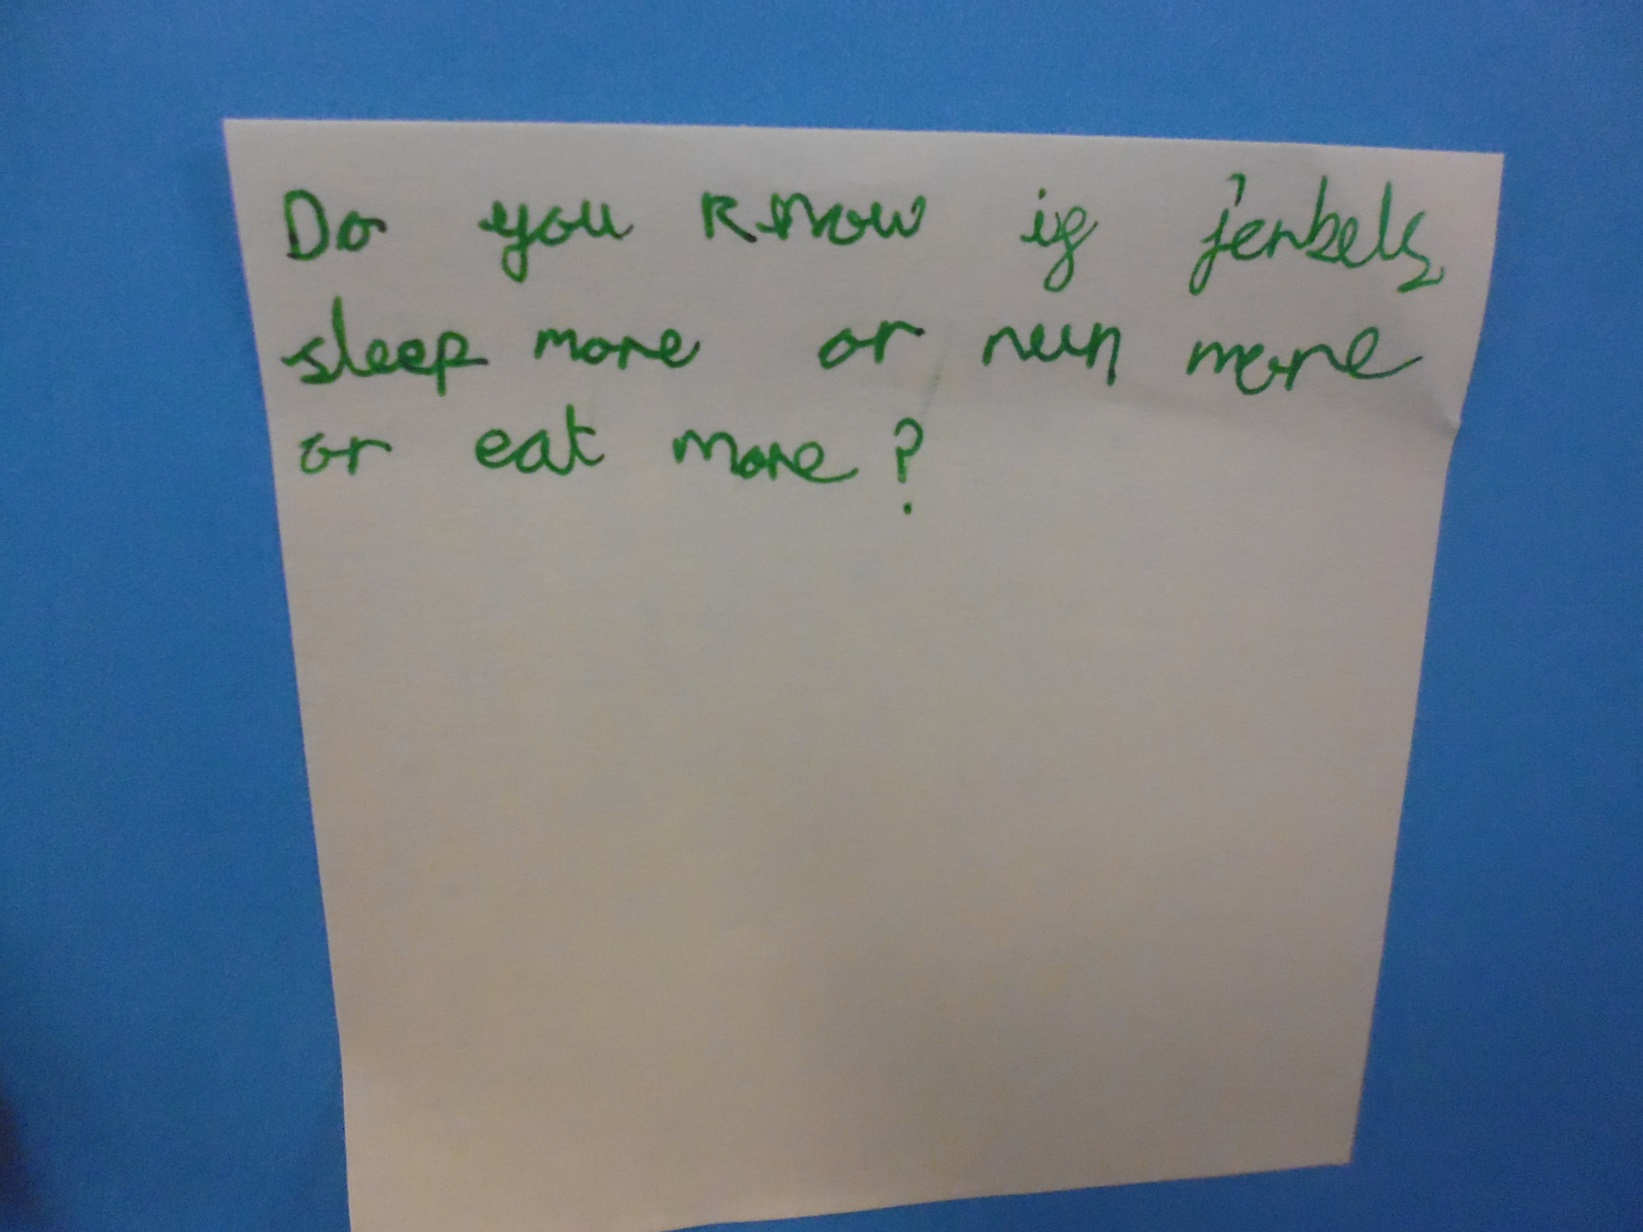 Do you know if jerbels
sleep more or run more
or eat more?